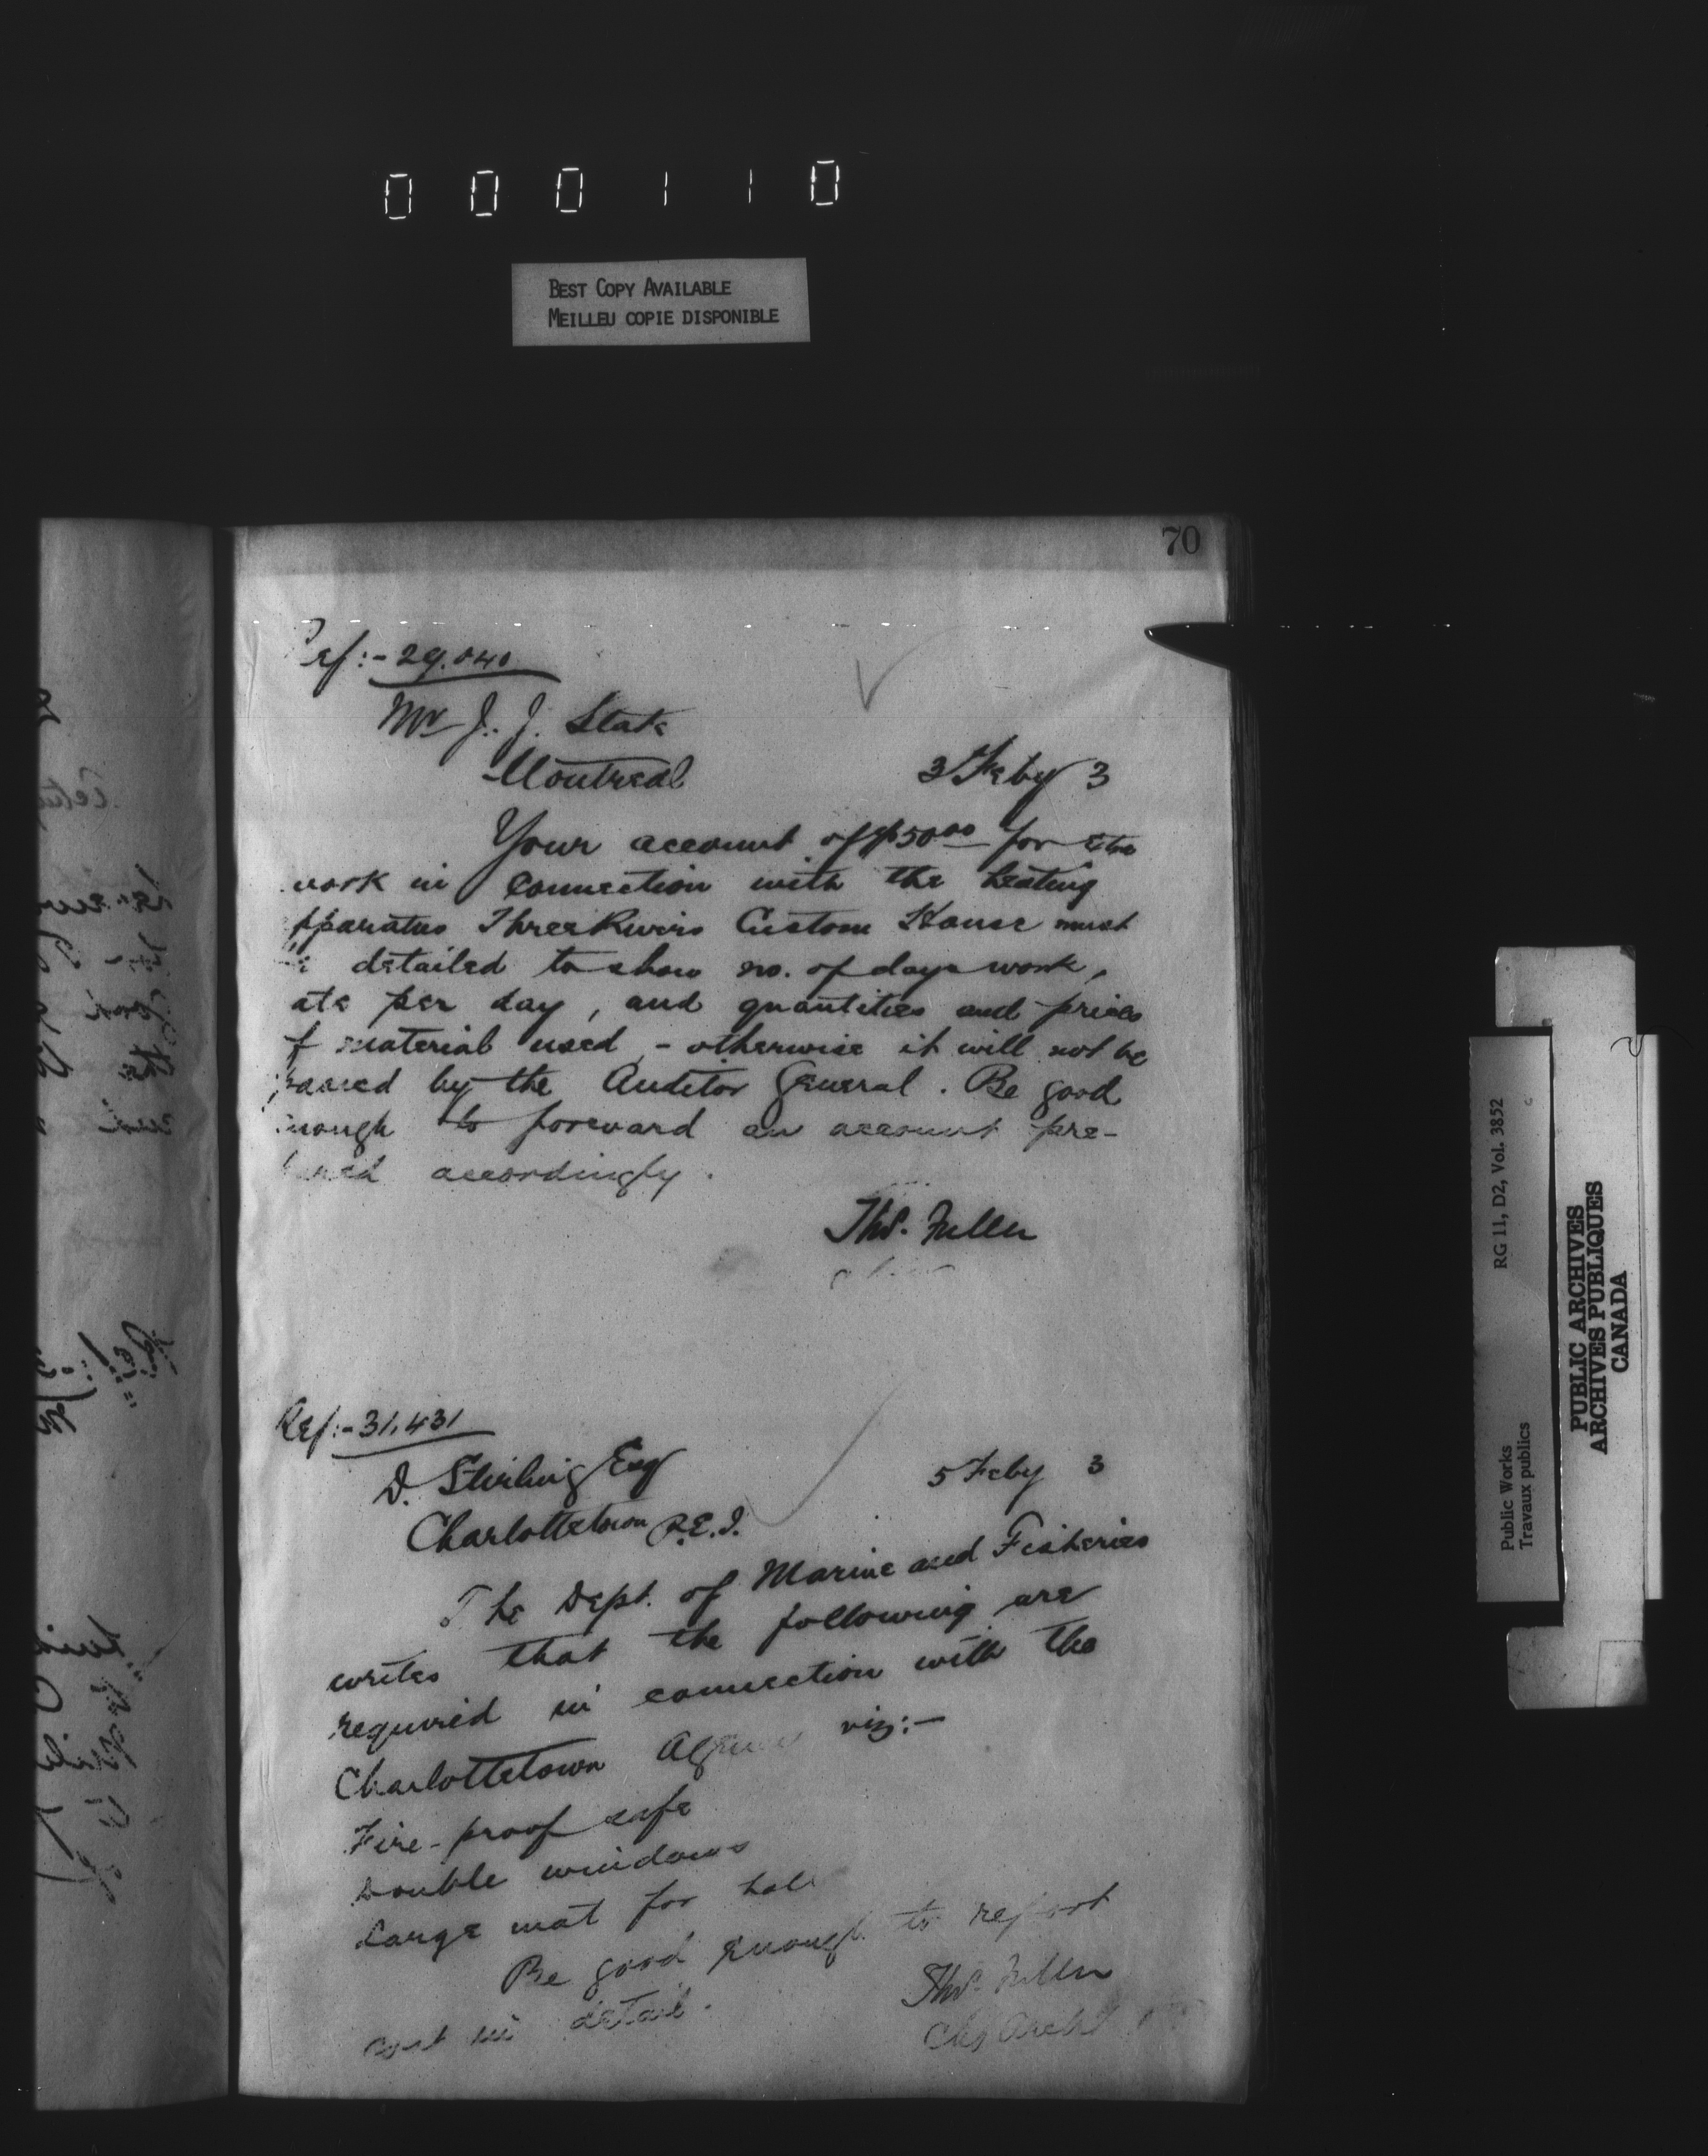 000110
BEST COPY AVAILABLE
MEILLEU COPIE DISPONIBLE
70
Ref:- 29.040
Mr J. J. State
Montreal 3 Feby 3
Your account of $50.00 for
work in connection with the heating
pparatus Three Rivers Custom House must
detailed to show no. of days work,
ate per day, and quantities and prices
f material used, - otherwise it will not be
passed by the Auditor General. Be good
nough to forward an account pre-
pared accordingly.
Thos. Fuller
Ref:- 31.431
D. Stirling Esq 5 Feby 3
Charlottetown P.E.I.
The Dept. of Marine and Fisheries
writes that the following are
required in connection with the
Charlottetown Agency viz:-
Fire-proof safe
Double windows
Large mat for hall
Be good enough to report
cost in detail.
Thos. Fuller
Chf Archt
RG 11, D2, Vol. 3852
Public Works
Travaux publics
PUBLIC ARCHIVES
ARCHIVES PUBLIQUES
CANADA